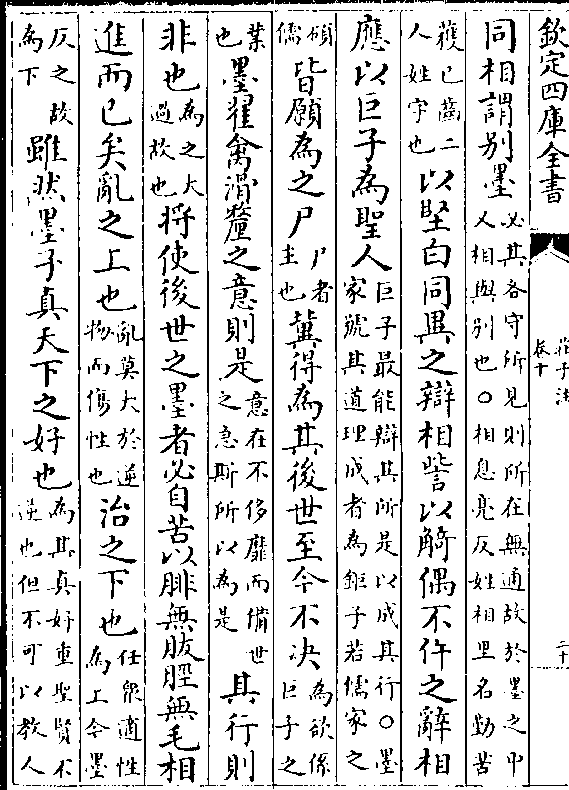 欽定四庫全書
莊子注
卷十
二十
同相謂别墨必其各守所見則所在無通故於墨之中又相與别也○相息亮反姓相里名勤苦
獲已齒二人姓字也以堅白同異之辯相訾以觭偶不仵之辭相
應以巨子為聖人巨子最能辯其所是以成其行○墨家號其道理成者為鉅子若儒家之
碩儒皆願為之尸尸者主也冀得為其後世至今不決為欲係巨子之
業也墨翟禽滑釐之意則是意在不侈靡而備世之急斯所以為是其行則
非也為之大過故也將使後世之墨者必自苦以腓無胈脛無毛相
進而已矣亂之上也亂莫大於逆物而傷性也治之下也任衆適性為上今墨
反之故為下雖然墨子真天下之好也為其真好重聖賢不逆也但不可以教人